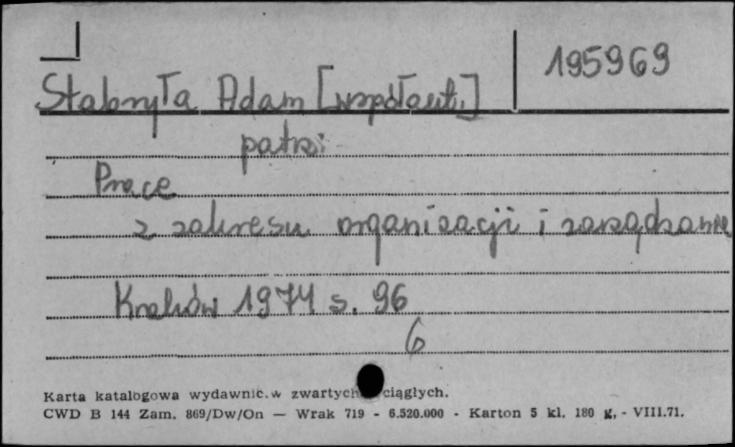 195969
Stabryła Adam [współaut.]
patrz:
Prace
z zakresu organizacji i zarządzania
Kraków 1974 s. 96
6
Karta katalogowa wydawnic. w zwartych ciągłych.
CWD B 144 Zam. 869/Dw/On — Wrak 719 - 6.520.000 - Karton 5 kl. 180 g. - VIII.71.